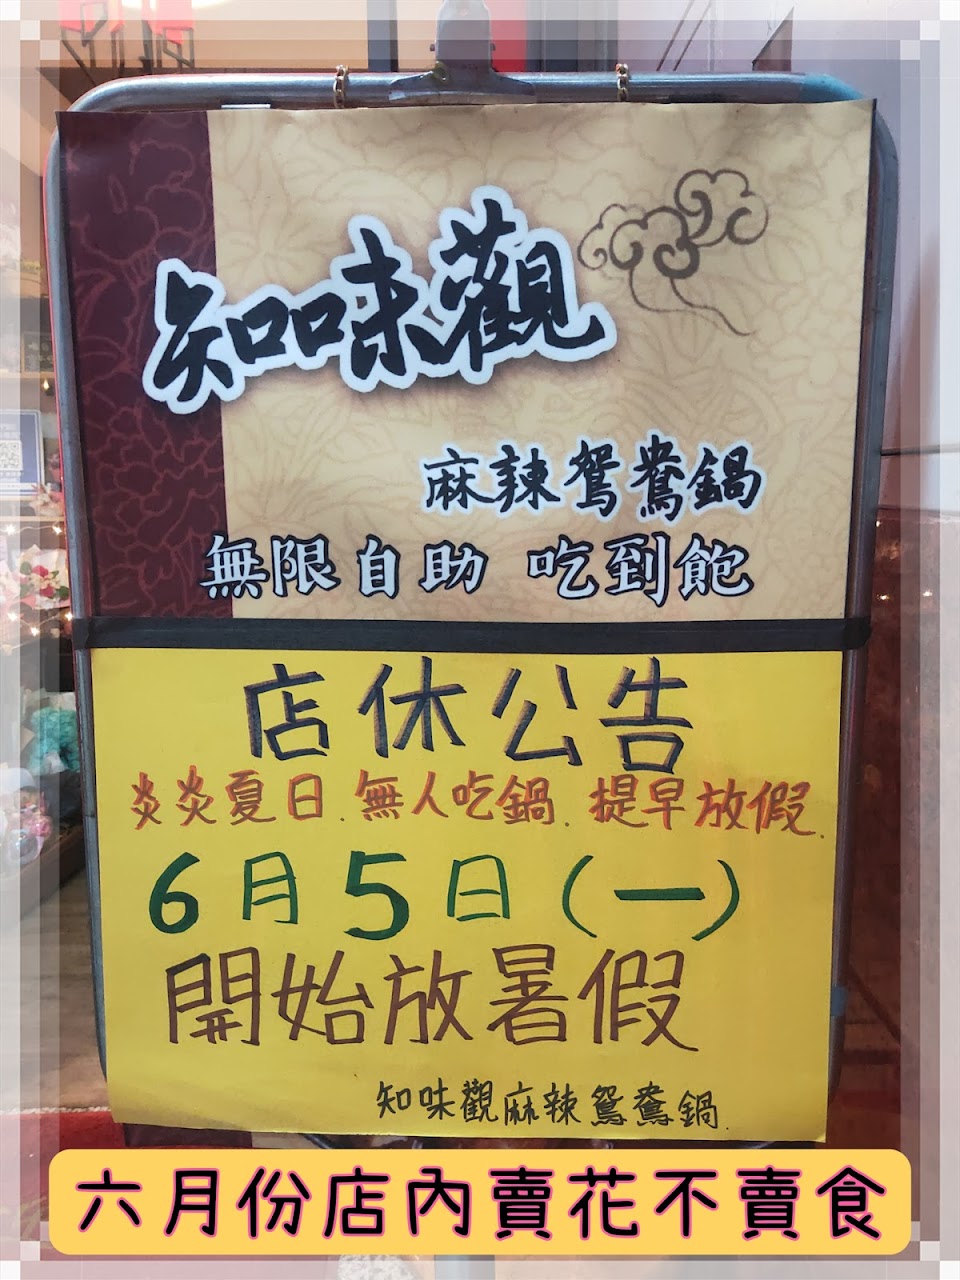 知味觀
麻辣鴛鴦鍋
無限自助 吃到飽
店休公告
炎炎夏日.無人吃鍋.提早放假.
6月5日(一)
開始放暑假
知味觀麻辣鴛鴦鍋
六月份店內賣花不賣食